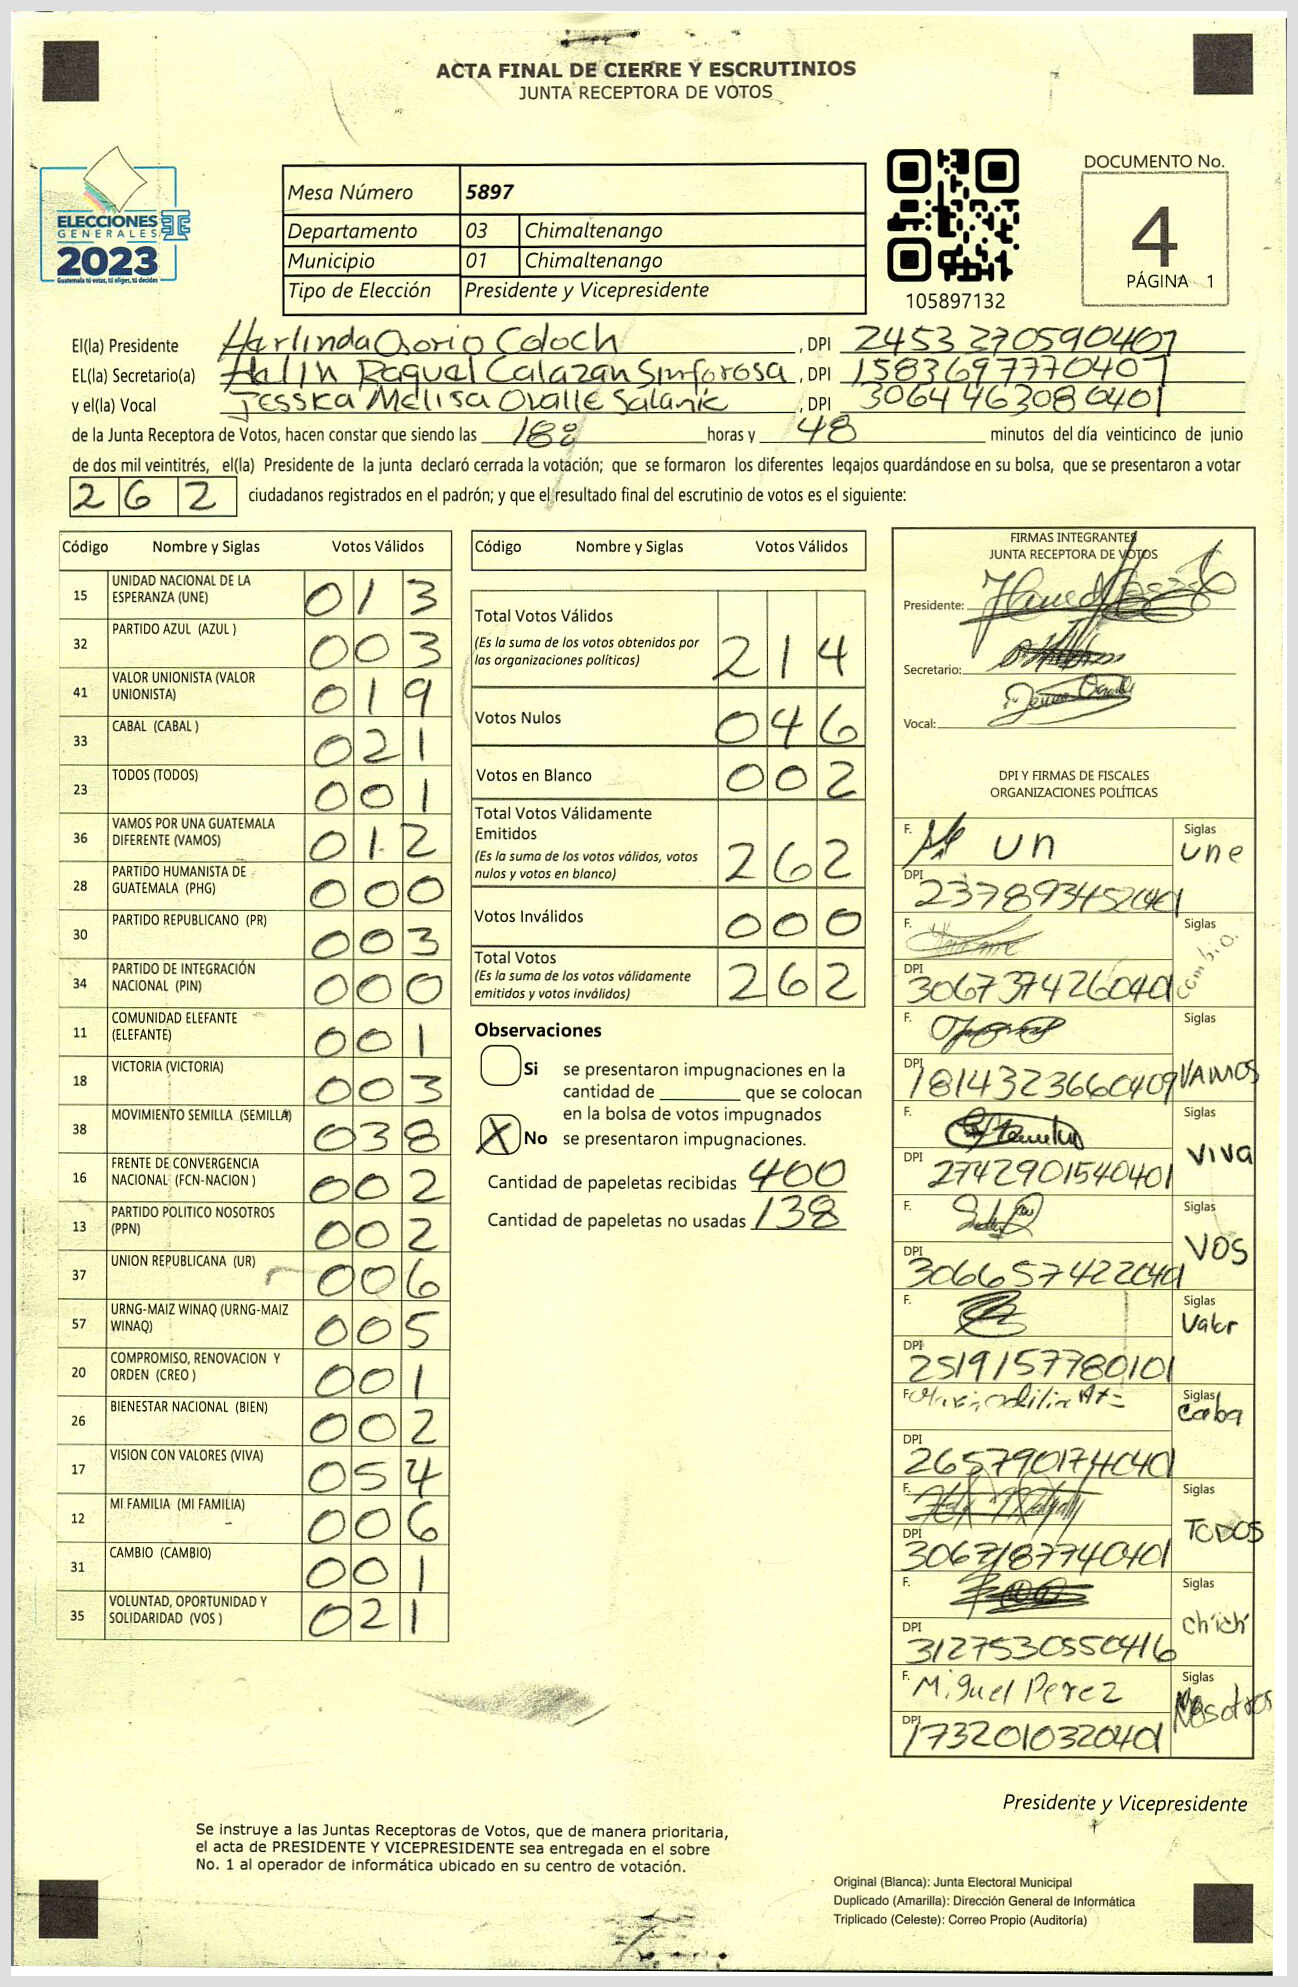 ACTA FINAL DE CIERRE Y ESCRUTINIOS
JUNTA RECEPTORA DE VOTOS
ELECCIONES
GENERALES
2023
Guatemala tú votas, tú eliges, tú decides
Mesa Número 5897
Departamento 03 Chimaltenango
Municipio 01 Chimaltenango
Tipo de Elección Presidente y Vicepresidente
105897132
DOCUMENTO No.
4
PÁGINA 1
El(la) Presidente Harlinda Osorio Coloch, DPI 2453270590407
EL(la) Secretario(a) Raquel Calazan Sinforosa, DPI 1583697770407
y el(la) Vocal Jessica Melisa Ovalle Salanic, DPI 3064463080401
de la Junta Receptora de Votos, hacen constar que siendo las 18: horas y 48 minutos del día veinticinco de junio
de dos mil veintitrés, el(la) Presidente de la junta declaró cerrada la votación; que se formaron los diferentes legajos guardándose en su bolsa, que se presentaron a votar
262 ciudadanos registrados en el padrón; y que el resultado final del escrutinio de votos es el siguiente:
Código Nombre y Siglas Votos Válidos
15 UNIDAD NACIONAL DE LA ESPERANZA (UNE) 013
32 PARTIDO AZUL (AZUL ) 003
41 VALOR UNIONISTA (VALOR UNIONISTA) 019
33 CABAL (CABAL ) 021
23 TODOS (TODOS) 001
36 VAMOS POR UNA GUATEMALA DIFERENTE (VAMOS) 012
28 PARTIDO HUMANISTA DE GUATEMALA (PHG) 000
30 PARTIDO REPUBLICANO (PR) 003
34 PARTIDO DE INTEGRACIÓN NACIONAL (PIN) 000
11 COMUNIDAD ELEFANTE (ELEFANTE) 001
18 VICTORIA (VICTORIA) 003
38 MOVIMIENTO SEMILLA (SEMILLA) 038
16 FRENTE DE CONVERGENCIA NACIONAL (FCN-NACION ) 002
13 PARTIDO POLITICO NOSOTROS (PPN) 002
37 UNION REPUBLICANA (UR) 006
57 URNG-MAIZ WINAQ (URNG-MAIZ WINAQ) 005
20 COMPROMISO, RENOVACION Y ORDEN (CREO ) 001
26 BIENESTAR NACIONAL (BIEN) 002
17 VISION CON VALORES (VIVA) 054
12 MI FAMILIA (MI FAMILIA) 006
31 CAMBIO (CAMBIO) 001
35 VOLUNTAD, OPORTUNIDAD Y SOLIDARIDAD (VOS ) 021
Código Nombre y Siglas Votos Válidos
Total Votos Válidos
(Es la suma de los votos obtenidos por
las organizaciones políticas) 214
Votos Nulos 046
Votos en Blanco 002
Total Votos Válidamente
Emitidos
(Es la suma de los votos válidos, votos
nulos y votos en blanco) 262
Votos Inválidos 000
Total Votos
(Es la suma de los votos válidamente
emitidos y votos inválidos) 262
Observaciones
Si se presentaron impugnaciones en la
cantidad de ________ que se colocan
en la bolsa de votos impugnados
X No se presentaron impugnaciones.
Cantidad de papeletas recibidas 400
Cantidad de papeletas no usadas 138
FIRMAS INTEGRANTES
JUNTA RECEPTORA DE VOTOS
Presidente:
Secretario:
Vocal:
DPI Y FIRMAS DE FISCALES
ORGANIZACIONES POLÍTICAS
F. un Siglas une
DPI
F. Siglas cambio.
DPI 3067374260401
F. Siglas VAMOS
DPI 1814323660409
F. Siglas VIVA
DPI 2742901540401
F. Siglas VOS
DPI 30666574220401
F. Siglas Valor
DPI 2519157780101
F. Siglas Caba
DPI 2657901740401
F. Siglas TODOS
DPI 3067187740401
F. Siglas
DPI 3127530550416
F. Miguel Perez Siglas Nosotros
DPI 1732010320401
Presidente y Vicepresidente
Se instruye a las Juntas Receptoras de Votos, que de manera prioritaria,
el acta de PRESIDENTE Y VICEPRESIDENTE sea entregada en el sobre
No. 1 al operador de informática ubicado en su centro de votación.
Original (Blanca): Junta Electoral Municipal
Duplicado (Amarilla): Dirección General de Informática
Triplicado (Celeste): Correo Propio (Auditoría)